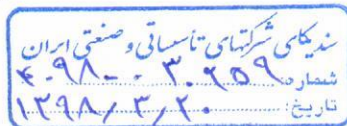 سندیکای شرکتهای تأسیساتی و صنعتی ایران
شماره:
تاریخ: ۱۳۹۸/۳/۲۰